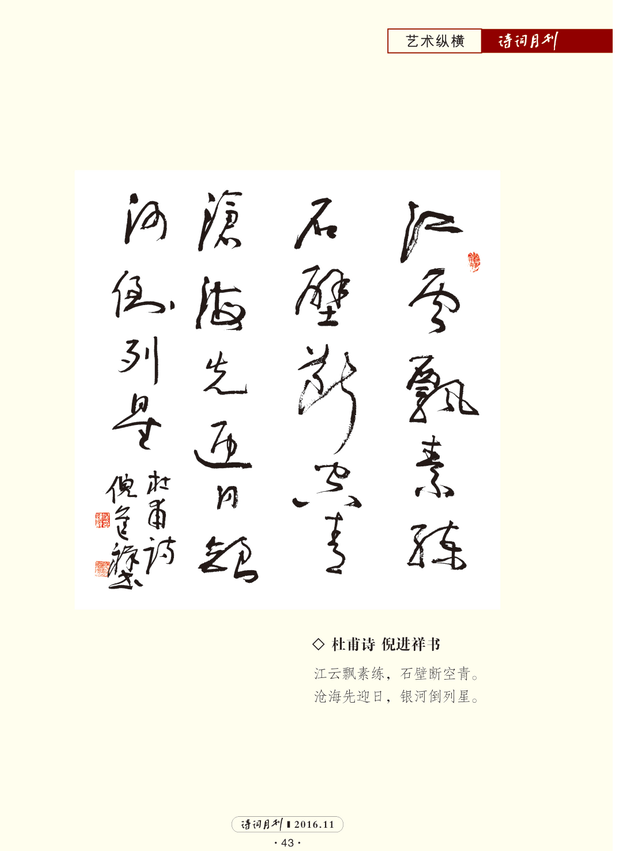 艺术纵横 诗词月刊
江雲飘素練
石壁断空青
滄海先迎日銀
河倒列星
杜甫诗
倪進祥书
◇ 杜甫诗 倪进祥书
江云飘素练，石壁断空青。
沧海先迎日，银河倒列星。
诗词月刊 2016.11
·43·